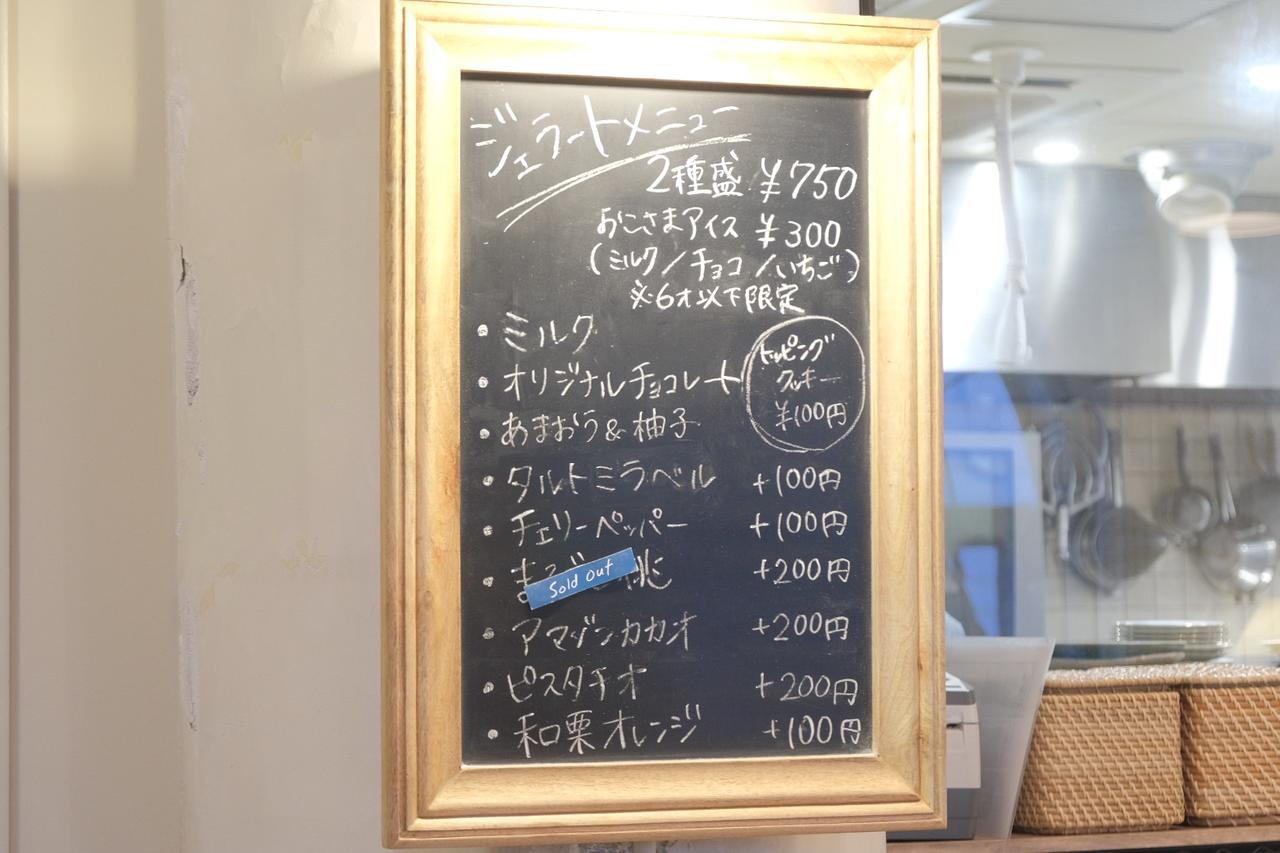 ジェラートメニュー
2種盛 ¥750
おこさまアイス ¥300
(ミルク/チョコ/いちご)
※6才以下限定
・ミルク
・オリジナルチョコレート
トッピング
クッキー
¥100円
・あまおう&柚子
・タルトミラベル +100円
・チェリーペッパー +100円
・ま 桃 +200円
Sold out
・アマゾンカカオ +200円
・ピスタチオ +200円
・和栗オレンジ +100円